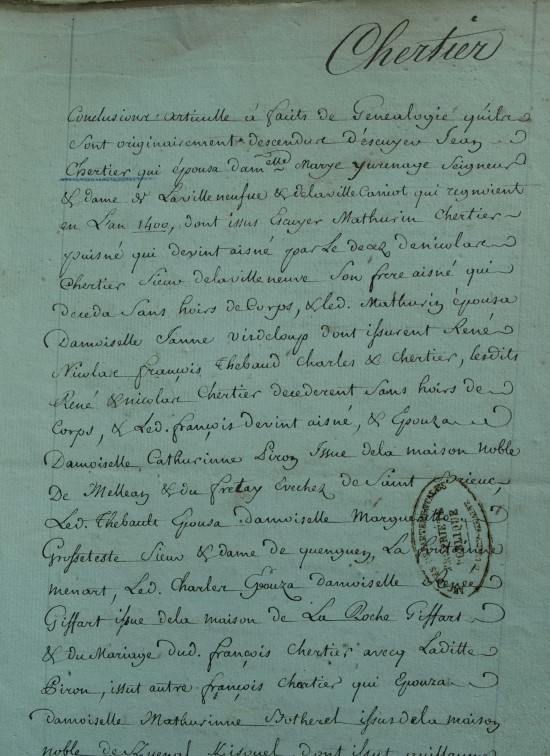 Chertier
Conclusions articulle á faits de Genealogie qu'ils
sont originairement descendus d'escuyer Jean
Chertier qui épousa dam^elle Marye yurenage Seigneur
& dame de Lavilleneufue & delaville Caniot qui regnoient
en L'an 1400, dont issus Escuyer Mathurin Chertier
puisné qui devint aisné par Le decez de nicolas
Chertier Sieur delavilleneuve Son frere aisné qui
deceda Sans hoirs de Corps, & led. Mathurin épousa
Damoiselle Janne Virdeloup dont issurent René
Nicolas françois Thebaud Charles & Chertier, lesdits
René & nicolas Chertier decederent sans hoirs de
Corps, & Led. françois devint aisné, & Epouza
Damoiselle Cathurinne Piron Issue dela maison noble
De Mellean & du fretay Evechez de Saint Brieuc,
Led. Thebault Epousa damoiselle Margueritte
Grosseteste Sieur & dame de quenguen, La
menart, Led. Charles Epouza damoiselle Renée
Giffart issue dela maison de La Roche Giffart
& du Mariage dud. françois Chertier avecq Laditte
Piron, issut autre françois Chertier qui Epouza
Damoiselle Mathurinne Botherel issus dela maison
noble de dont issut guillaume